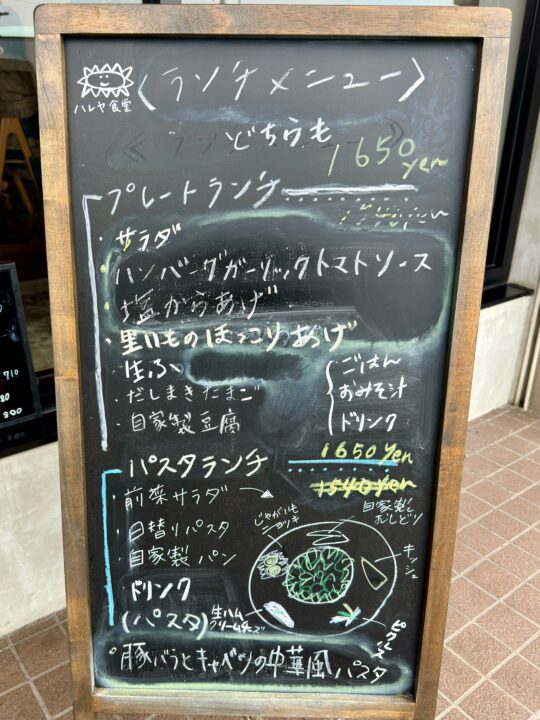 ハレヤ食堂
〈ランチメニュー〉
どちらも
1650yen
プレートランチ
・サラダ
・ハンバーグガーリックトマトソース
・塩からあげ
・里いものほっこりあげ
・生ふ
・だしまきたまご
・自家製豆腐
ごはん
おみそ汁
ドリンク
パスタランチ
1650yen
1540yen
・前菜サラダ
・日替りパスタ
・自家製パン
ドリンク
(パスタ)
じゃがいも
ニョッキ
自家製
むしどり
キッシュ
ピクルス
生ハム
クリームチーズ
・豚バラとキャベツの中華風パスタ
710
80
800